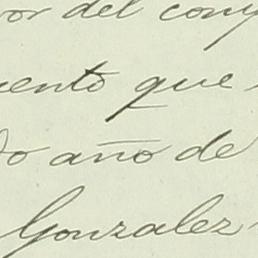 or del conv
ento que
do año de
Gonzalez